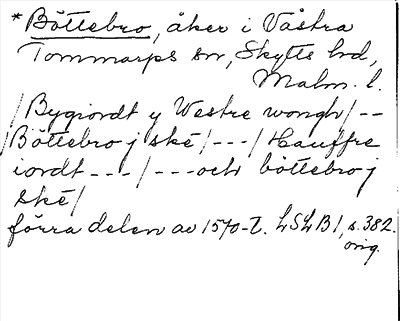 *Böttebro, åker i Västra
Tommarps sn, Skytts hd,
Malm. l.
/Bygiordt y Westre wongh/--
/Böttebro j ské/---/Hauffre
iordt---/---och böttebro j
ské/
förra delen av 1570-t. LSLB1, s.382.
orig.